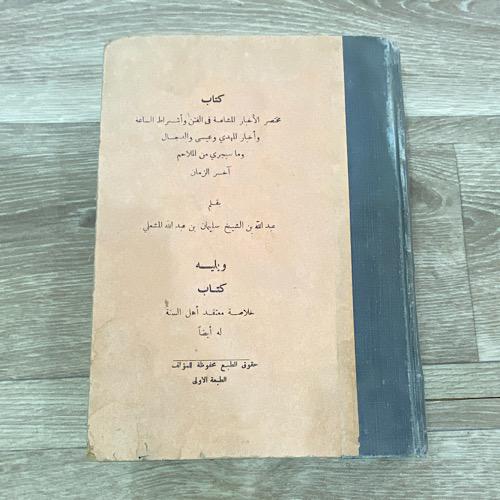 كتاب
مختصر الأخبار المشاعة في الفتن وأشراط الساعة
وأخبار المهدي وعيسى والدجال
وما سيجري من الملاحم
آخر الزمان
بقلم
عبد الله بن الشيخ سليمان بن عبد الله المشعلي
ويليه
كتاب
خلاصة معتقد أهل السنة
له أيضاً
حقوق الطبع محفوظة للمؤلف
الطبعة الاولى